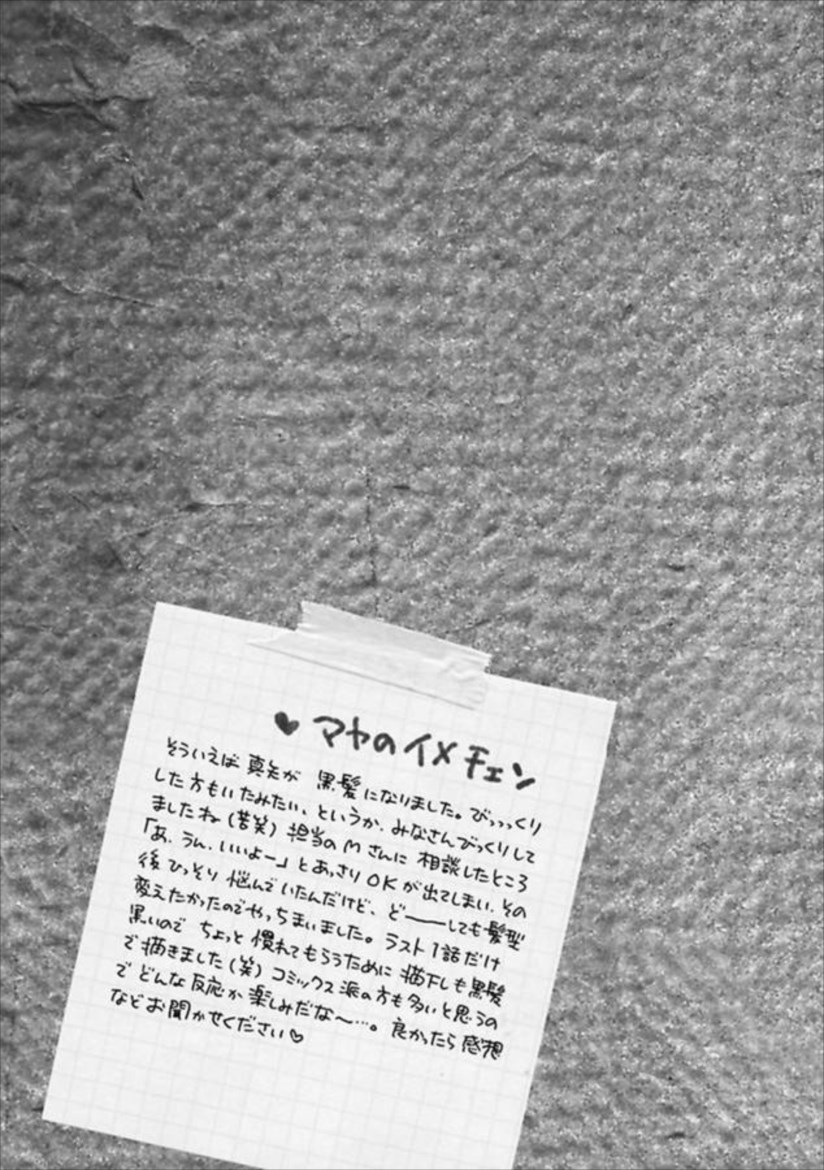 ♥マヤのイメチェン
そういえば真矢が 黒髪になりました。びっっっくり
した方もいたみたい、というか、みなさんびっくりして
ましたね(苦笑) 担当のMさんに 相談したところ
「あ、うん、いいよー」とあっさりOKが出てしまい、その
後ひっそり悩んでいたんだけど、ど――しても髪型
変えたかったのでやっちまいました。ラスト1話だけ
黒いので ちょっと慣れてもらうために描下しも黒髪
で描きました(笑)コミックス派の方も多いと思うの
で どんな反応か楽しみだな〜…。良かったら感想
などお聞かせください♡